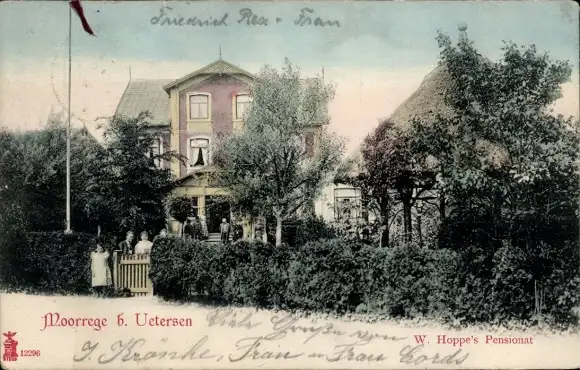 Friedrich Rex + Frau
Moorrege b. Uetersen
Viele Grüße von
W. Hoppe's Pensionat
J. Kröncke, Frau und Frau Cords
12296